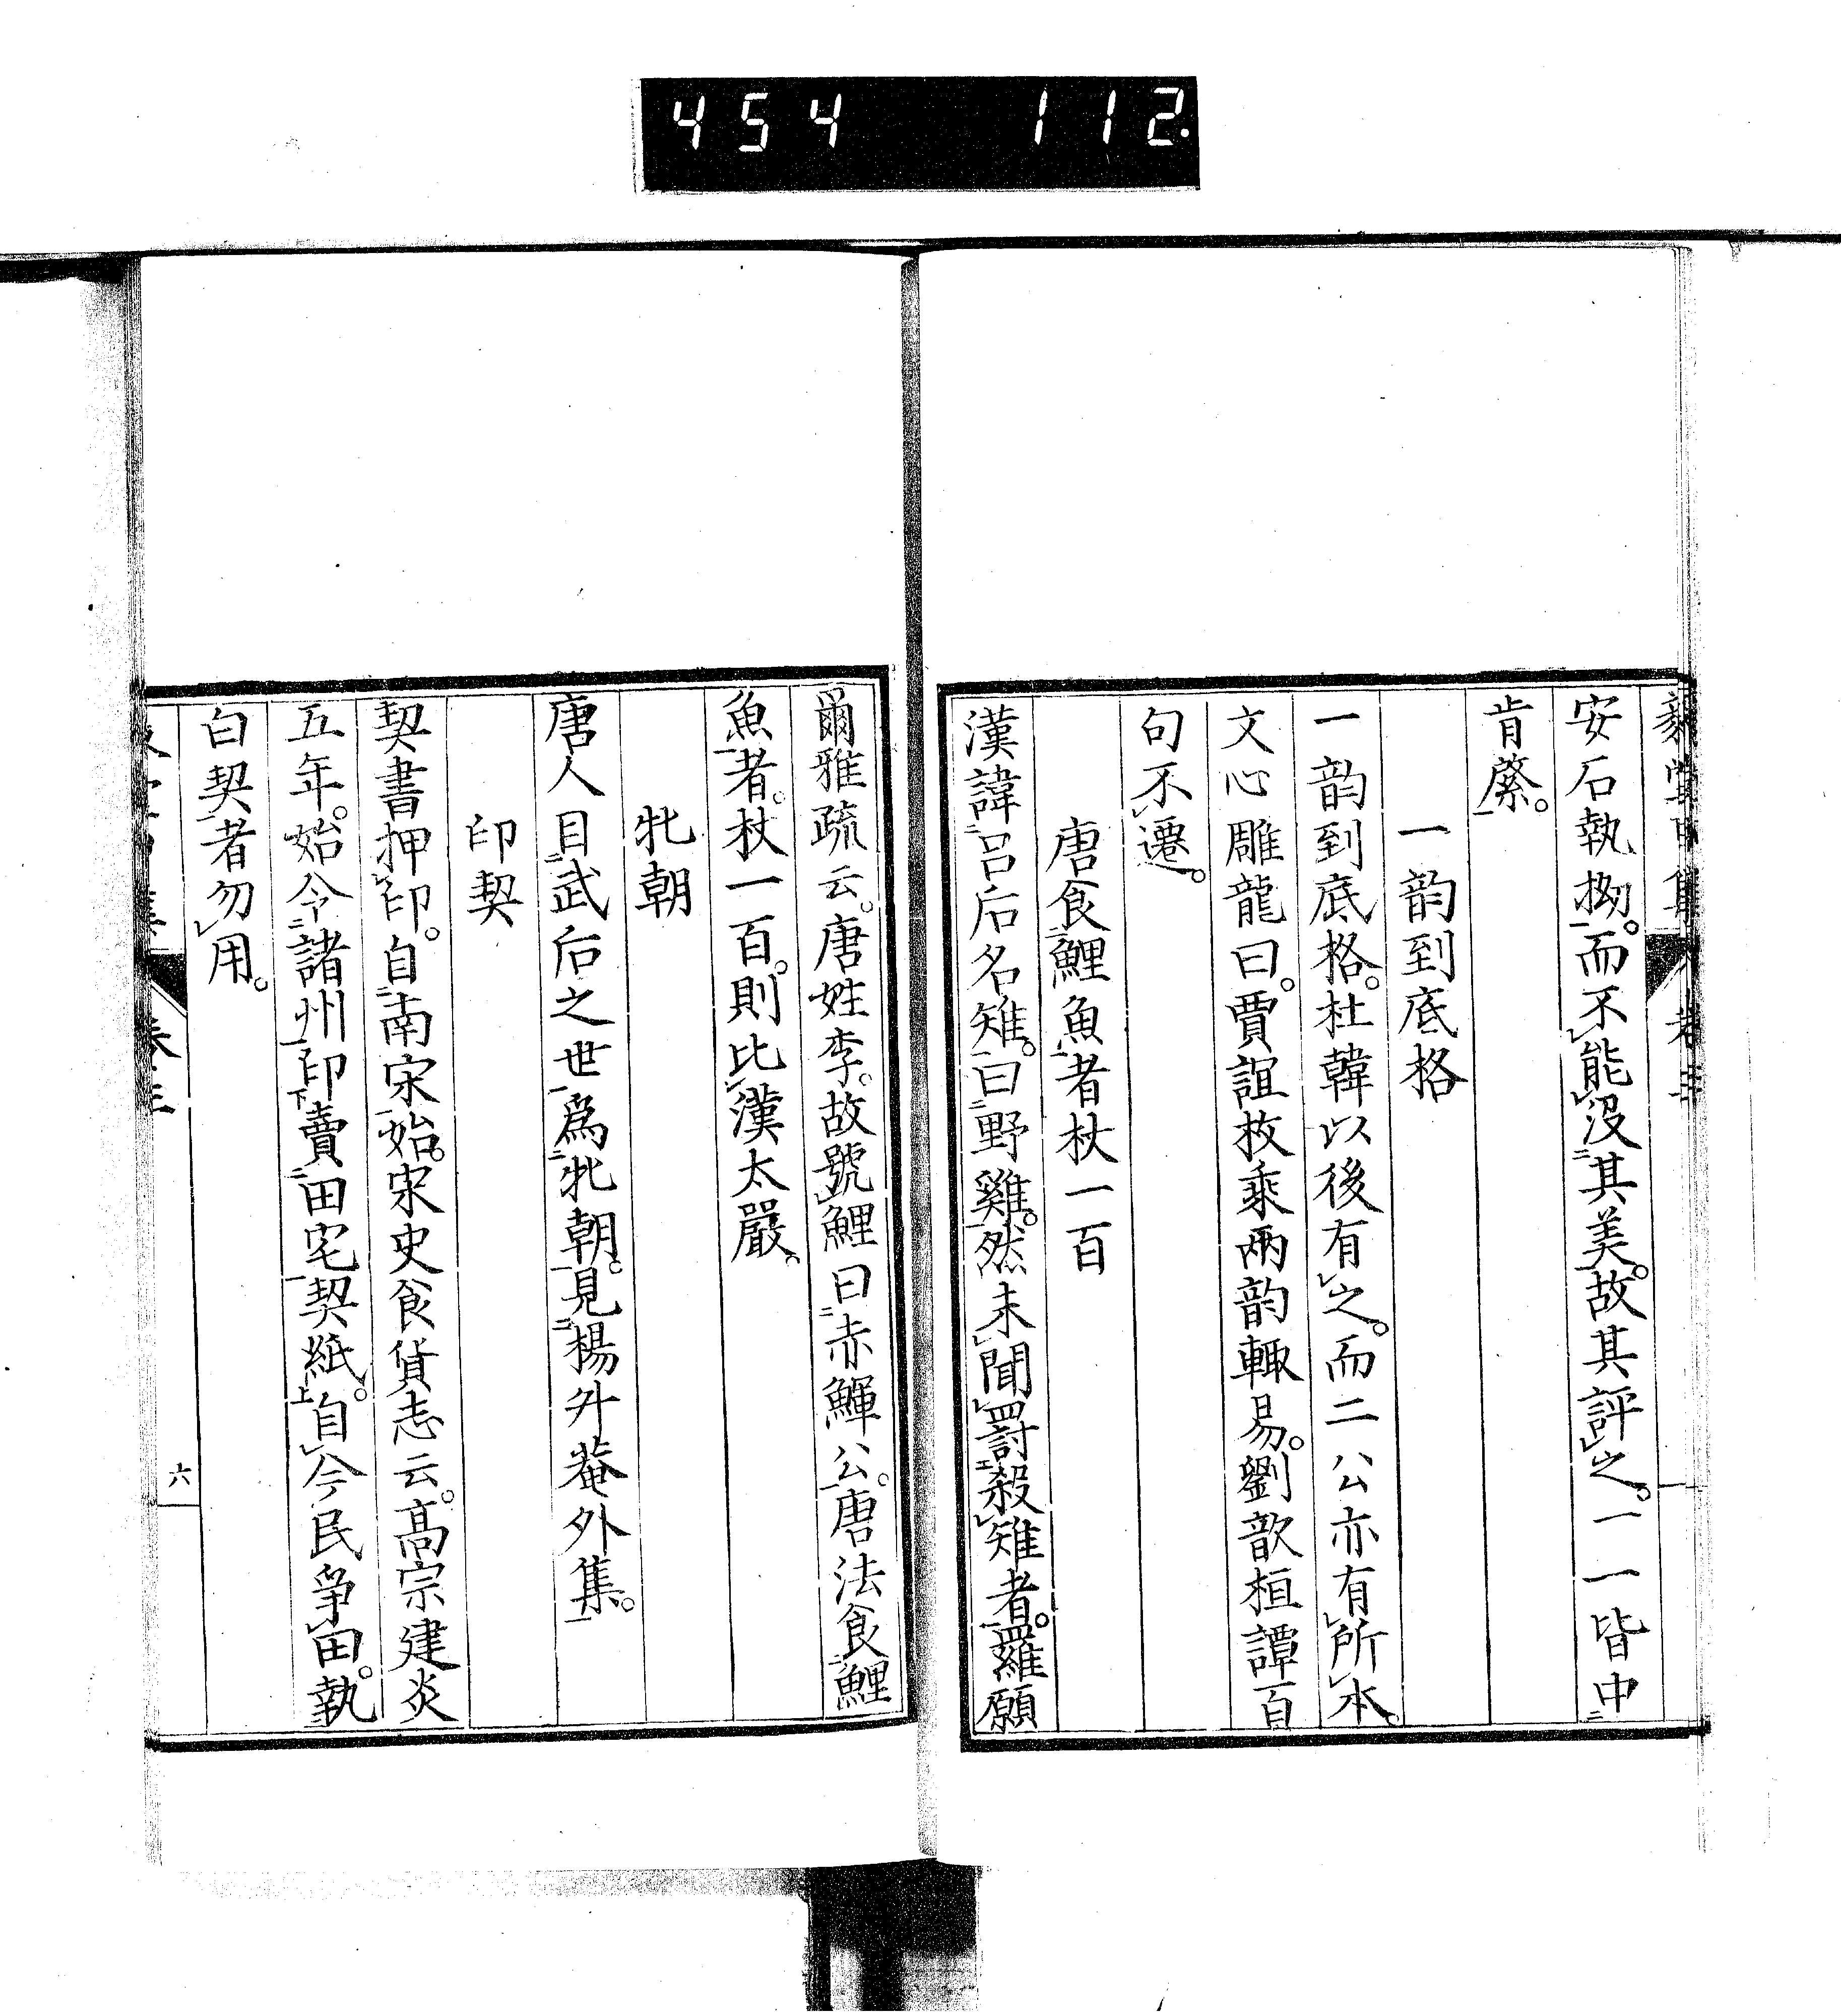 454 112.
安石執拗。而不能没其美。故其評之。一一皆中
肯綮。
一韵到底格
一韵到底格。杜韓以後有之。而二公亦有所本。
文心雕龍曰。賈誼枚乘兩韵輒易。劉歆桓譚百
句不遷。
唐食鯉魚者杖一百
漢諱呂后名雉。曰野雞。然未聞罰殺雉者。羅願
爾雅疏云。唐姓李。故號鯉曰赤鯶公。唐法食鯉
魚者。杖一百。則比漢太嚴。
牝朝
唐人目武后之世爲牝朝。見楊升菴外集。
印契
契書押印。自南宋始。宋史食貨志云。高宗建炎
五年。始令諸州印賣田宅契紙。自今民爭田。執
白契者勿用。
卷三
六